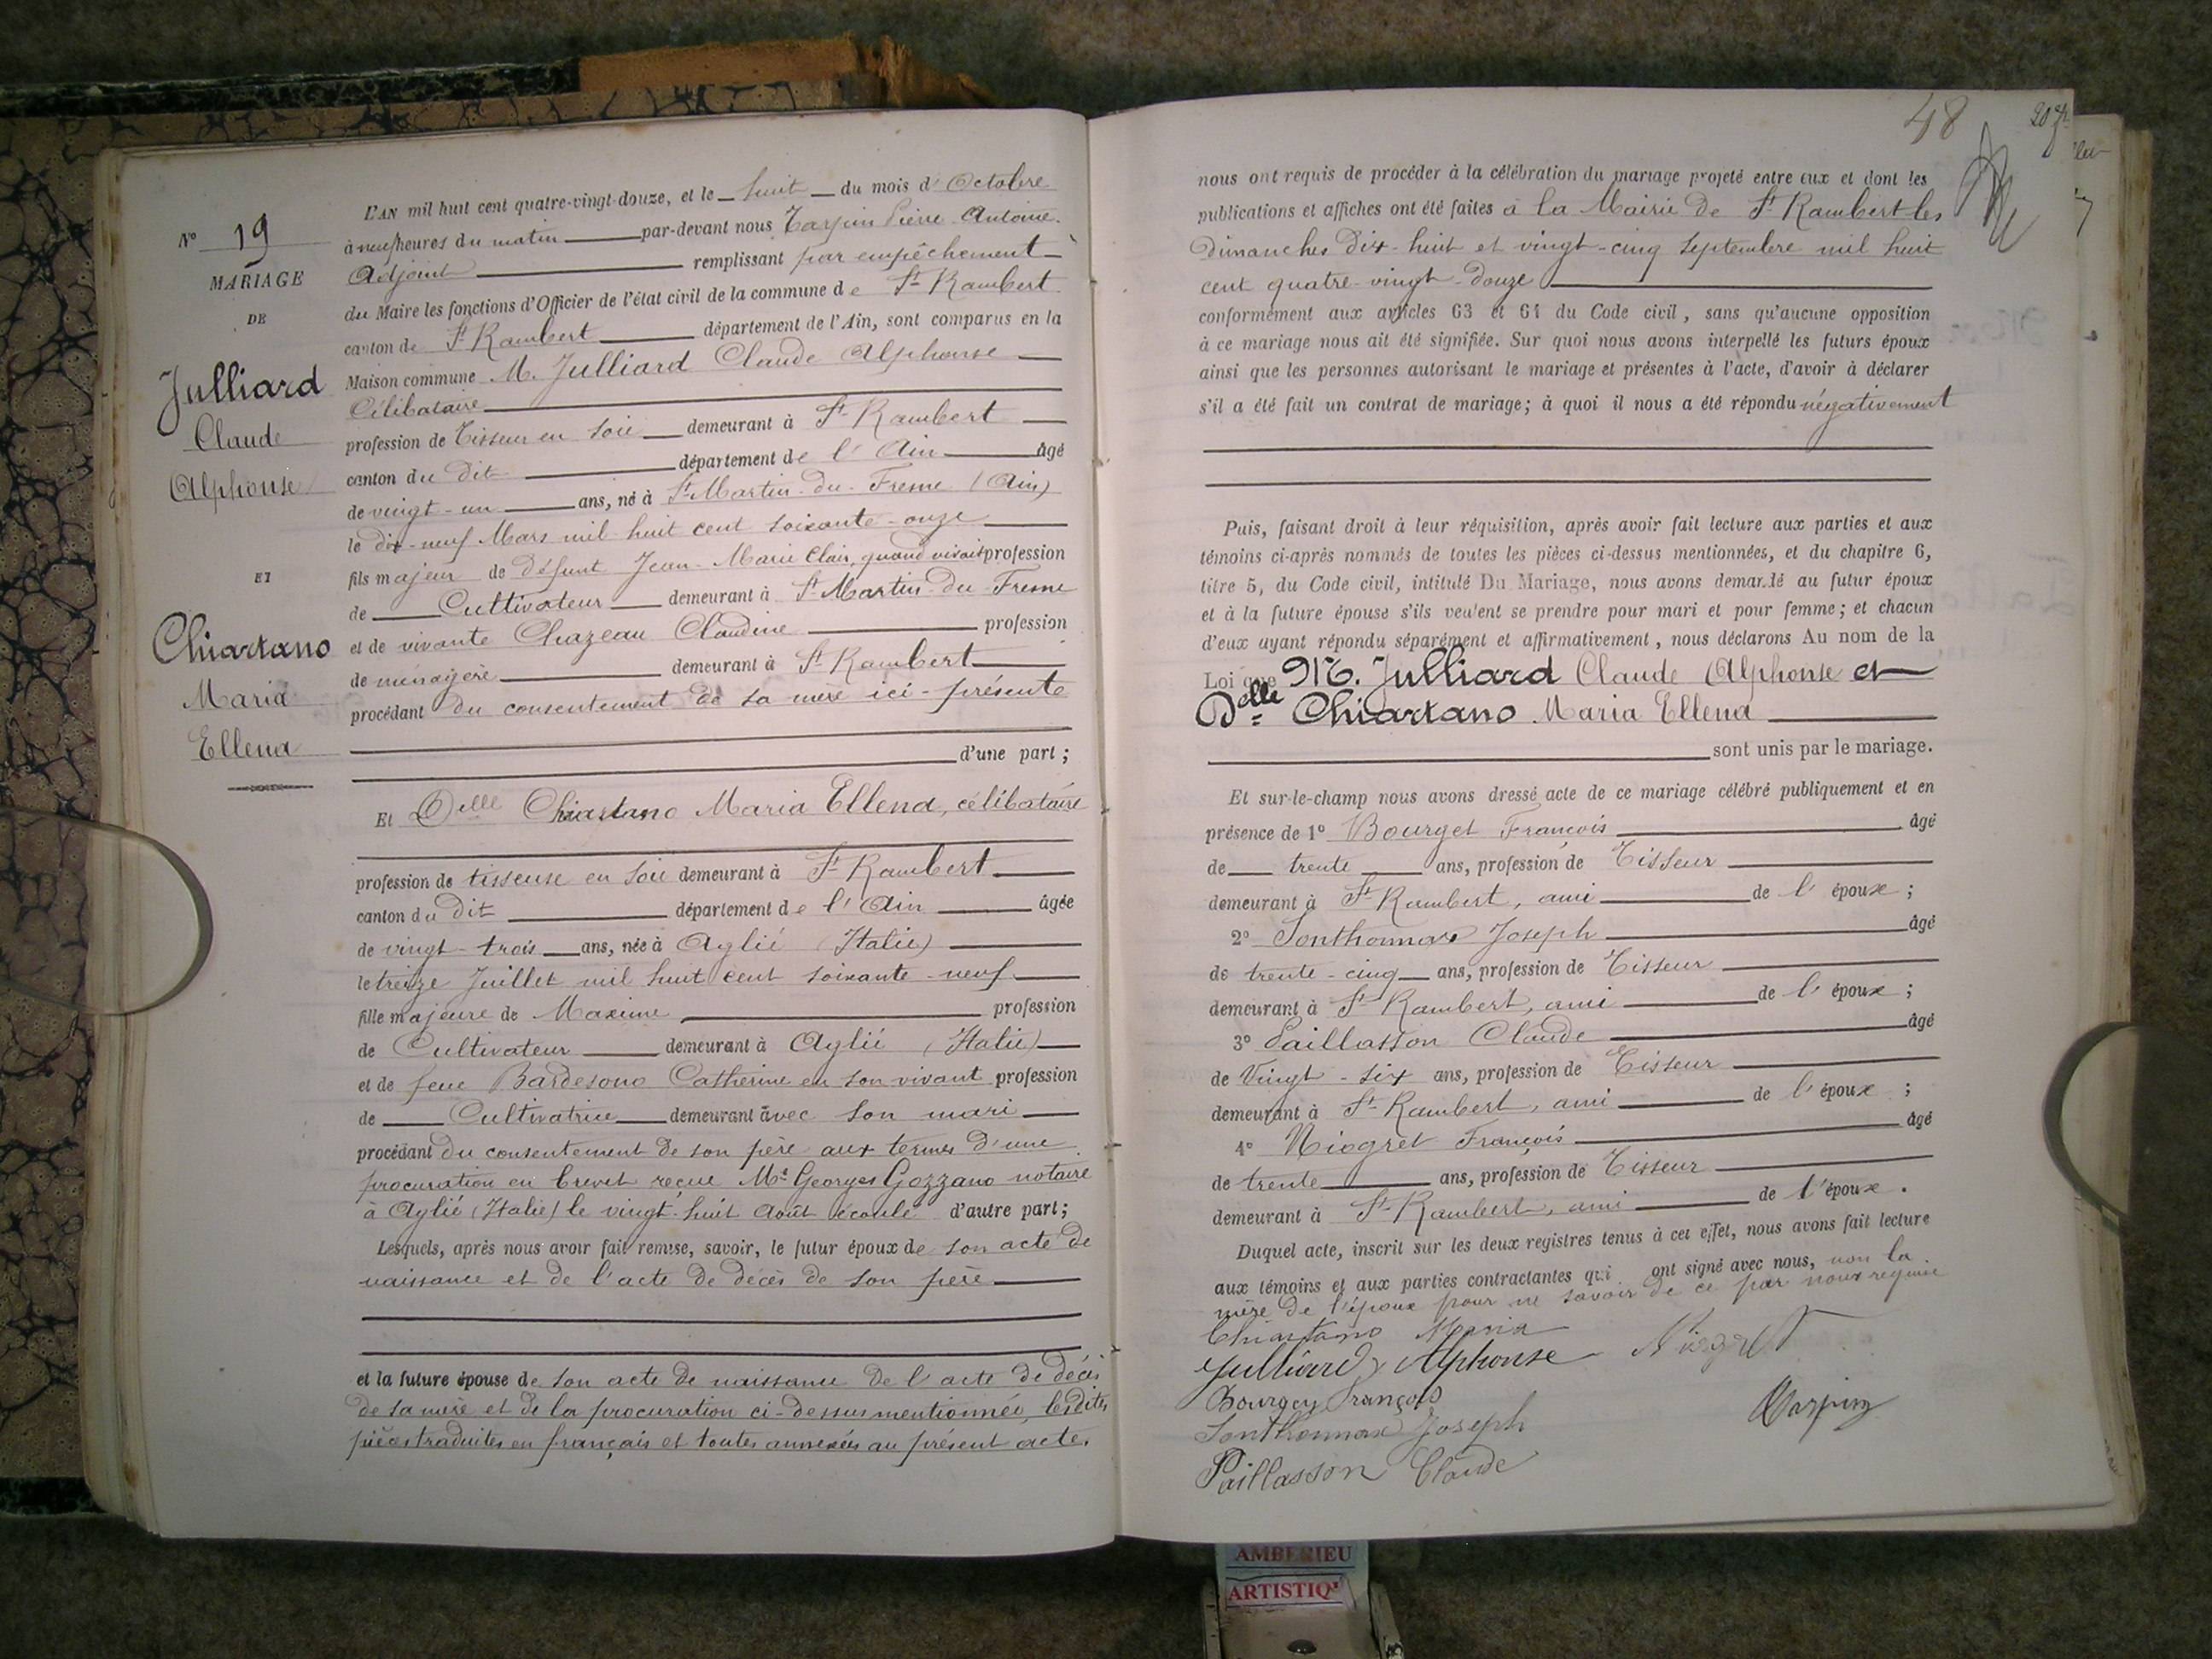 N° 19
MARIAGE
DE
Julliard
Claude
Alphonse
ET
Chiartano
Maria
Ellena
L'AN mil huit cent quatre-vingt-douze, et le huit du mois d'Octobre
à neuf heures du matin par-devant nous Tarpin Pierre Antoine
Adjoint remplissant par empêchement
du Maire les fonctions d'Officier de l'état civil de la commune de St Rambert
canton de St Rambert département de l'Ain, sont comparus en la
Maison commune M. Julliard Claude Alphonse
Célibataire
profession de Tisseur en soie demeurant à St Rambert
canton du dit département de l'Ain âgé
de vingt-un ans, né à St Martin-du-Fresne (Ain)
le dix-neuf Mars mil huit cent soixante-onze
fils majeur de défunt Jean-Marie Clair, quand vivait profession
de Cultivateur demeurant à St Martin-du-Fresne
et de vivante Chazeau Claudine profession
de ménagère demeurant à St Rambert
procédant du consentement de sa mère ici-présente
d'une part ;
Et Delle Chiartano Maria Ellena, célibataire
profession de tisseuse en soie demeurant à St Rambert
canton du dit département de l'Ain âgée
de vingt-trois ans, née à Aglié (Italie)
le treize Juillet mil huit cent soixante-neuf
fille majeure de Maxime profession
de Cultivateur demeurant à Aglié (Italie)
et de feue Bardesono Catherine en son vivant profession
de Cultivatrice demeurant avec son mari
procédant du consentement de son père aux termes d'une
procuration en brevet reçue Me Georges Gozzano notaire
à Aglié (Italie) le vingt-huit Août écoulé d'autre part ;
Lesquels, après nous avoir fait remise, savoir, le futur époux de son acte de
naissance et de l'acte de décès de son père
et la future épouse de son acte de naissance de l'acte de décès
de sa mère et de la procuration ci-dessus mentionnée, lesdites
pièces traduites en français et toutes annexées au présent acte.
48
nous ont requis de procéder à la célébration du mariage projeté entre eux et dont les
publications et affiches ont été faites à la Mairie de St Rambert les
Dimanches dix-huit et vingt-cinq Septembre mil huit
cent quatre-vingt-douze
conformément aux articles 63 et 64 du Code civil, sans qu'aucune opposition
à ce mariage nous ait été signifiée. Sur quoi nous avons interpellé les futurs époux
ainsi que les personnes autorisant le mariage et présentes à l'acte, d'avoir à déclarer
s'il a été fait un contrat de mariage ; à quoi il nous a été répondu négativement
Puis, faisant droit à leur réquisition, après avoir fait lecture aux parties et aux
témoins ci-après nommés de toutes les pièces ci-dessus mentionnées, et du chapitre 6,
titre 5, du Code civil, intitulé Du Mariage, nous avons demandé au futur époux
et à la future épouse s'ils veulent se prendre pour mari et pour femme ; et chacun
d'eux ayant répondu séparément et affirmativement, nous déclarons Au nom de la
Loi que M. Julliard Claude Alphonse et
Delle Chiartano Maria Ellena
sont unis par le mariage.
Et sur-le-champ nous avons dressé acte de ce mariage célébré publiquement et en
présence de 1° Bourget François âgé
de trente ans, profession de Tisseur
demeurant à St Rambert, ami de l'époux ;
2° Sonthonnax Joseph âgé
de trente-cinq ans, profession de Tisseur
demeurant à St Rambert, ami de l'époux ;
3° Paillasson Claude âgé
de Vingt-six ans, profession de Tisseur
demeurant à St Rambert, ami de l'époux ;
4° Niogret François âgé
de trente ans, profession de Tisseur
demeurant à St Rambert, ami de l'époux.
Duquel acte, inscrit sur les deux registres tenus à cet effet, nous avons fait lecture
aux témoins et aux parties contractantes qui ont signé avec nous, non la
mère de l'époux pour ne savoir de ce par nous requise
Chiartano Maria
Julliard Alphonse Niogret
Bourgey François
Sonthonnax Joseph Tarpin
Paillasson Claude
AMBERIEU
ARTISTIQ